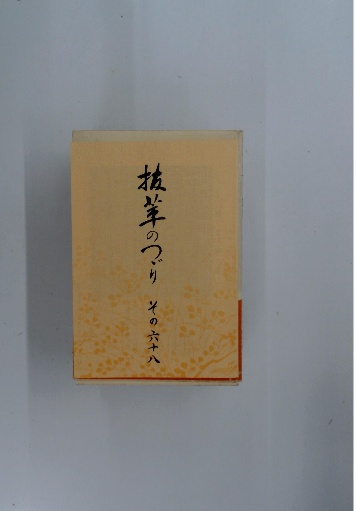 抜萃のつゞり その六十八